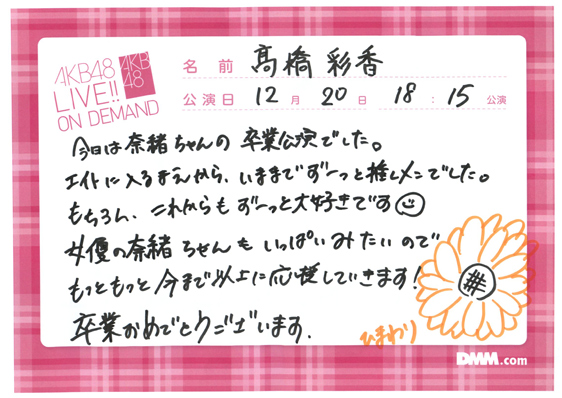 AKB48
LIVE!!
ON DEMAND
AKB
48
名前 髙橋彩香
公演日 12月20日 18:15公演
今日は奈緒ちゃんの卒業公演でした。
エイトに入るまえから、いままでずーっと推しメンでした。
もちろん、これからもずーっと大好きです
女優の奈緒ちゃんもいっぱいみたいので
もっともっと今まで以上に応援していきます!
卒業おめでとうございます.
ひまわり
DMM.com